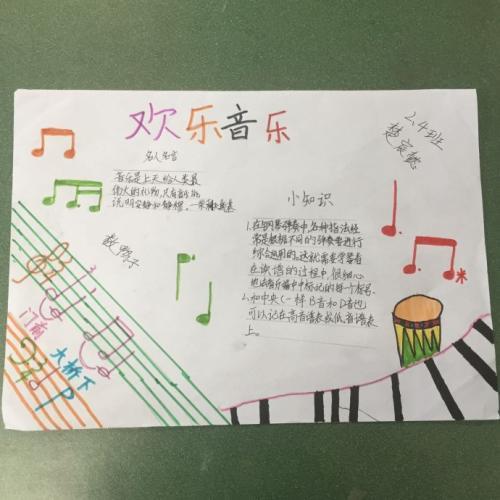 欢乐音乐
2.4班
名人名言
音乐是上天给人类最
伟大的礼物,只有音乐能
说明安静和静穆。
小知识
1.在钢琴弹奏中,各种指法经
常是根据不同的弹奏者进行
综合运用的。这就需要学习者
在读谱的过程中,很细心
地注意
中标记的每一个指号。
2.和中央C一样B音和D音也
可以记在高音谱表或低音谱表
上。
数鸭子
门前
大桥下
米